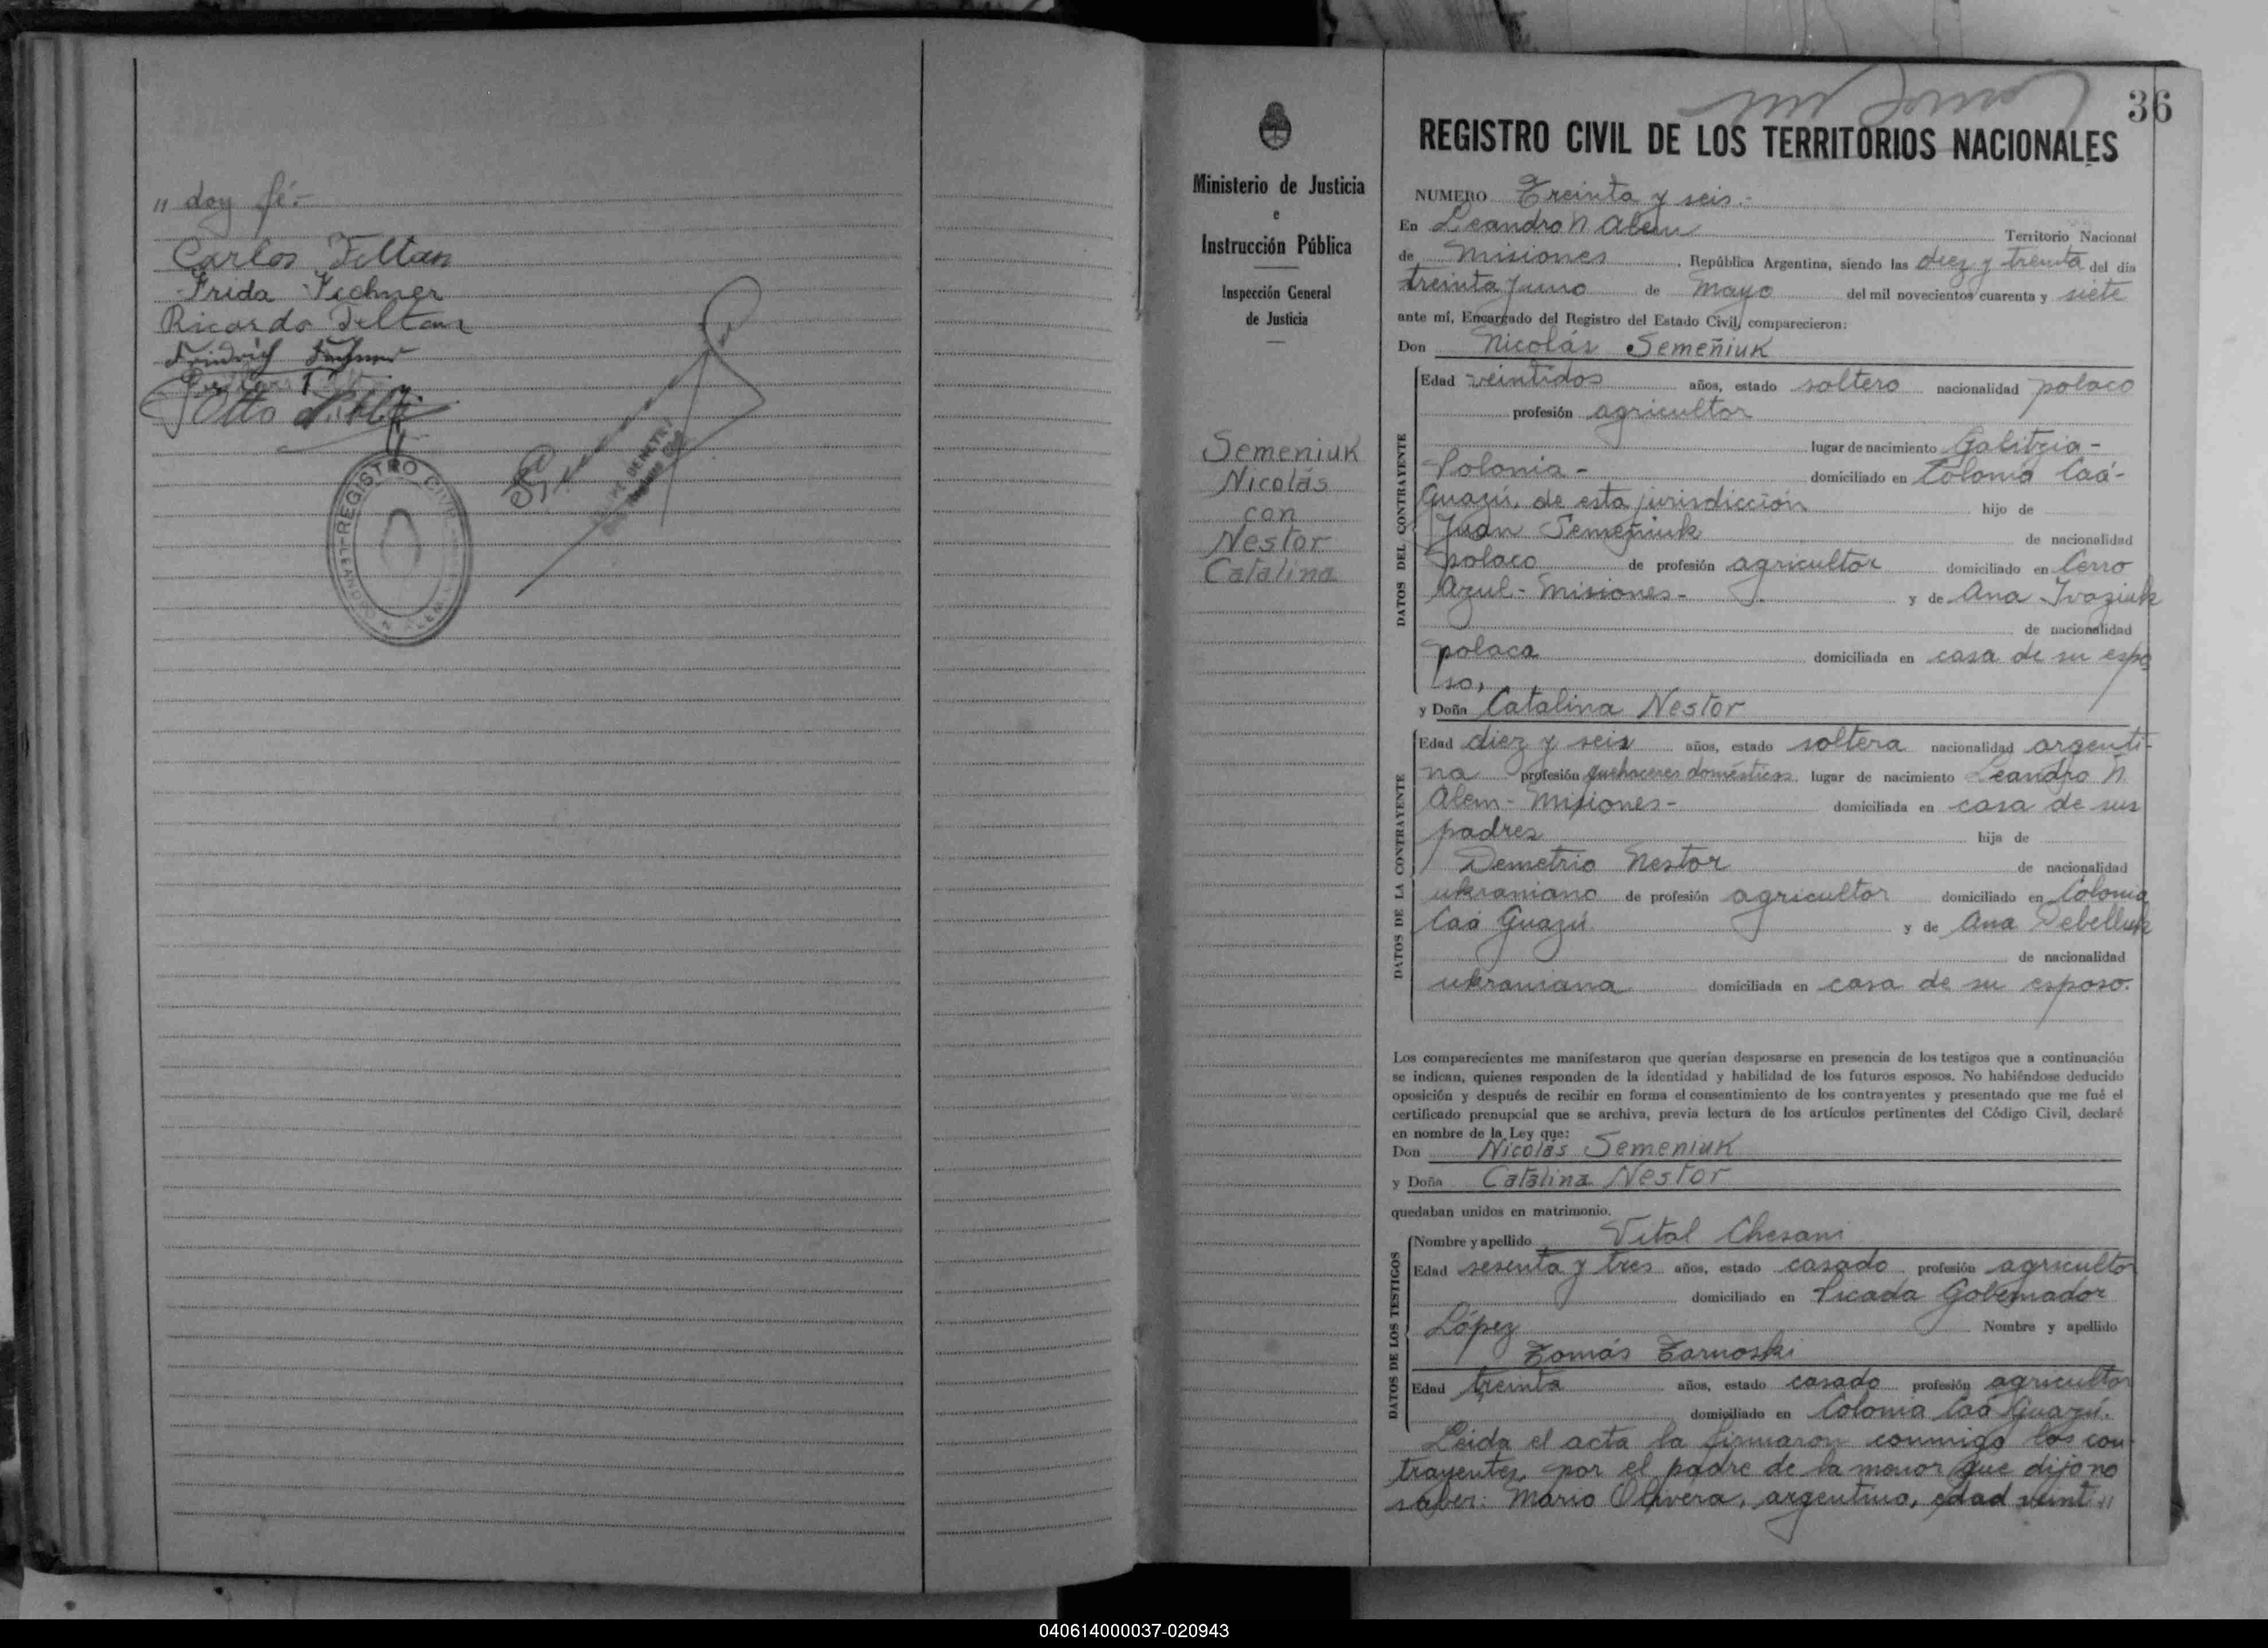 " doy fé.-
Carlos Feltan
Frida Fechner
Ricardo Feltan
Friedrich Fechner
Otto
REGISTRO CIVIL
36
REGISTRO CIVIL DE LOS TERRITORIOS NACIONALES
Ministerio de Justicia
e
Instrucción Pública
Inspección General
de Justicia
Semeniuk
Nicolás
con
Nestor
Catalina
NUMERO Treinta y seis.-
En Leandro N Alem Territorio Nacional
de Misiones, República Argentina, siendo las diez y treinta del día
treinta y uno de Mayo del mil novecientos cuarenta y siete
ante mí, Encargado del Registro del Estado Civil, comparecieron:
Don Nicolás Semeñiuk
DATOS DEL CONTRAYENTE
Edad veintidos años, estado soltero nacionalidad polaco
profesión agricultor
lugar de nacimiento Galitzia-
Polonia- domiciliado en Colonia Caá-
Guazú, de esta jurisdicción hijo de
Juan Semeñiuk de nacionalidad
polaco de profesión agricultor domiciliado en Cerro
Azul- Misiones- y de Ana Ivaziuk
de nacionalidad
polaca domiciliada en casa de su espo
so,
y Doña Catalina Nestor
DATOS DE LA CONTRAYENTE
Edad diez y seis años, estado soltera nacionalidad argenti-
na profesión quehaceres domésticos lugar de nacimiento Leandro N
Alem- Misiones- domiciliada en casa de sus
padres hija de
Demetrio Nestor de nacionalidad
ukraniano de profesión agricultor domiciliado en Colonia
Caá Guazú y de Ana Debelluk
de nacionalidad
ukraniana domiciliada en casa de su esposo.
Los comparecientes me manifestaron que querían desposarse en presencia de los testigos que a continuación
se indican, quienes responden de la identidad y habilidad de los futuros esposos. No habiéndose deducido
oposición y después de recibir en forma el consentimiento de los contrayentes y presentado que me fué el
certificado prenupcial que se archiva, previa lectura de los artículos pertinentes del Código Civil, declaré
en nombre de la Ley que:
Don Nicolás Semeniuk
y Doña Catalina Nestor
quedaban unidos en matrimonio.
DATOS DE LOS TESTIGOS
Nombre y apellido Vital Chesani
Edad sesenta y tres años, estado casado profesión agricultor
domiciliado en Picada Gobernador
López Nombre y apellido
Tomás Tarnoski
Edad treinta años, estado casado profesión agricultor
domiciliado en Colonia Caá Guazú.
Leida el acta la firmaron conmigo los con
trayentes, por el padre de la menor que dijo no
saber: Mario Olivera, argentino, edad veinti "
040614000037-020943